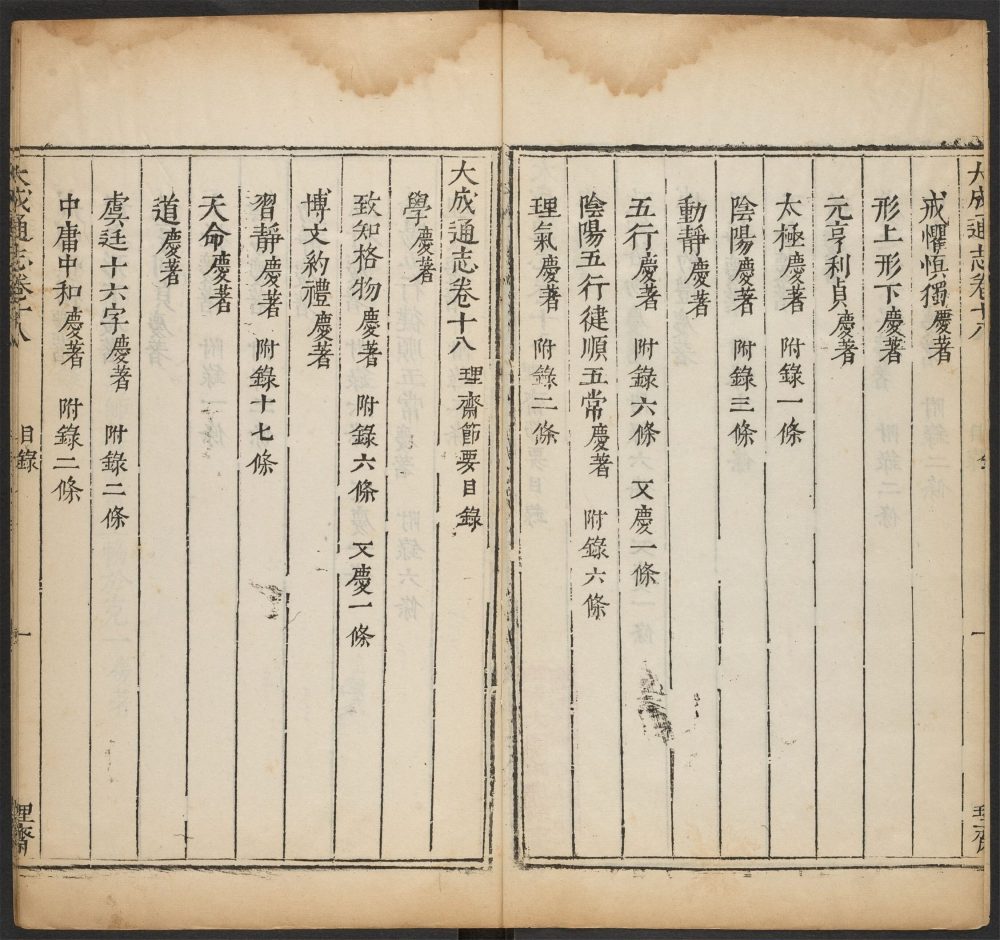 大成通志卷十八 一
戒懼慎獨慶著
形上形下慶著
元亨利貞慶著
太極慶著 附錄一條
陰陽慶著 附錄三條
動靜慶著
五行慶著 附錄六條 又慶一條
陰陽五行徤順五常慶著 附錄六條
理氣慶著 附錄二條
大成通志卷十八 理齋節要目錄
學慶著
致知格物慶著 附錄六條 又慶一條
博文約禮慶著
習靜慶著 附錄十七條
天命慶著
道慶著
虞廷十六字慶著 附錄二條
中庸中和慶著 附錄二條
大成通志卷十八 目錄 一 理齋